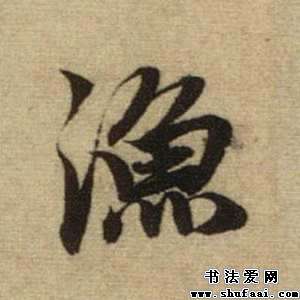 漁
书法爱网
www.shufaai.com